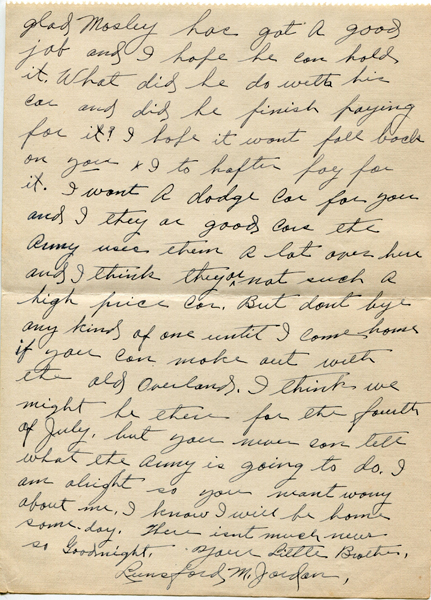 glad Mosley has got a good
job and I hope he can hold
it. What did he do with his
car and did he finish paying
for it? I hope it wont fall back
on you & I to hafter pay for
it. I want a dodge car for you
and I they ar good cars the
Army uses them a lot over here
and I think they ar not such a
high price car. But dont bye
any kind of one until I come home
if you can make out with
the old Overland. I think we
might be there for the fourth
of July. but you never can tell
what the Army is going to do. I
am alright so you want worry
about me. I know I will be home
some day. There isnt much news
so Goodnight. Your Little Brother,
Lunsford M. Jordan,